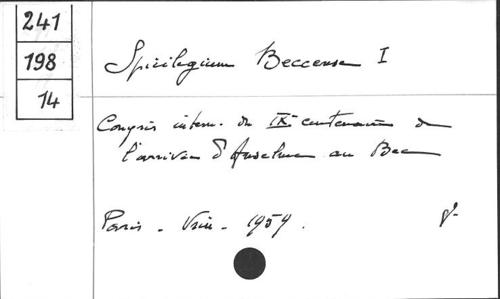 241
198
14
Spicilegium Beccense I
Congrès intern. du IXe centenaire de
l'arrivée d'Anselme au Bec
Paris - Vrin - 1959.